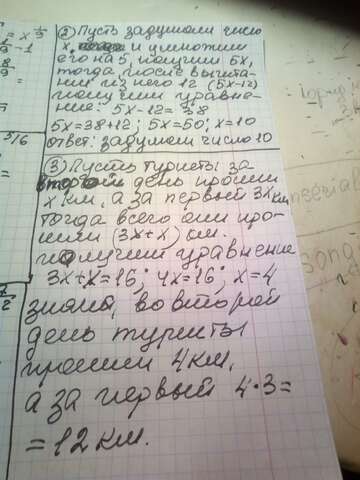 ② Пусть задумали число
x, и умножим
его на 5, получим 5x,
тогда после вычита-
ния из него 12 (5x-12)
получим уравне-
ние: 5x-12=38
5x=38+12; 5x=50; x=10
ответ: задумали число 10
③ Пусть туристы за
второй день прошли
x км, а за первый 3x км,
тогда всего они про-
шли (3x+x) км.
получим уравнение
3x+x=16; 4x=16; x=4
значит, во второй
день туристы
прошли 4 км,
а за первый 4·3=
=12 км.